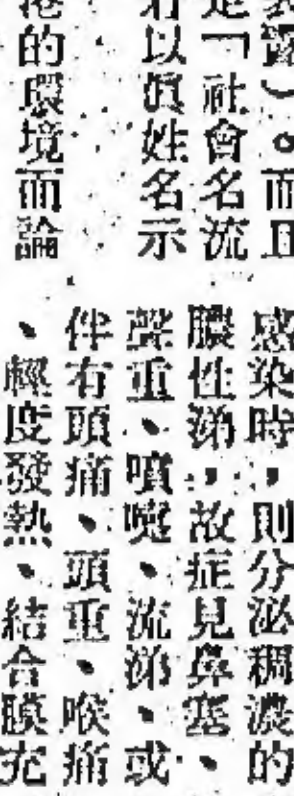 是「社會名流
以眞姓名示
港的環境而論
感染時，則分泌稠濃的
膿性涕，故症見鼻塞、
聲重、噴嚏、流涕、或
伴有頭痛、頭重、喉痛
、輕度發熱、結合膜充